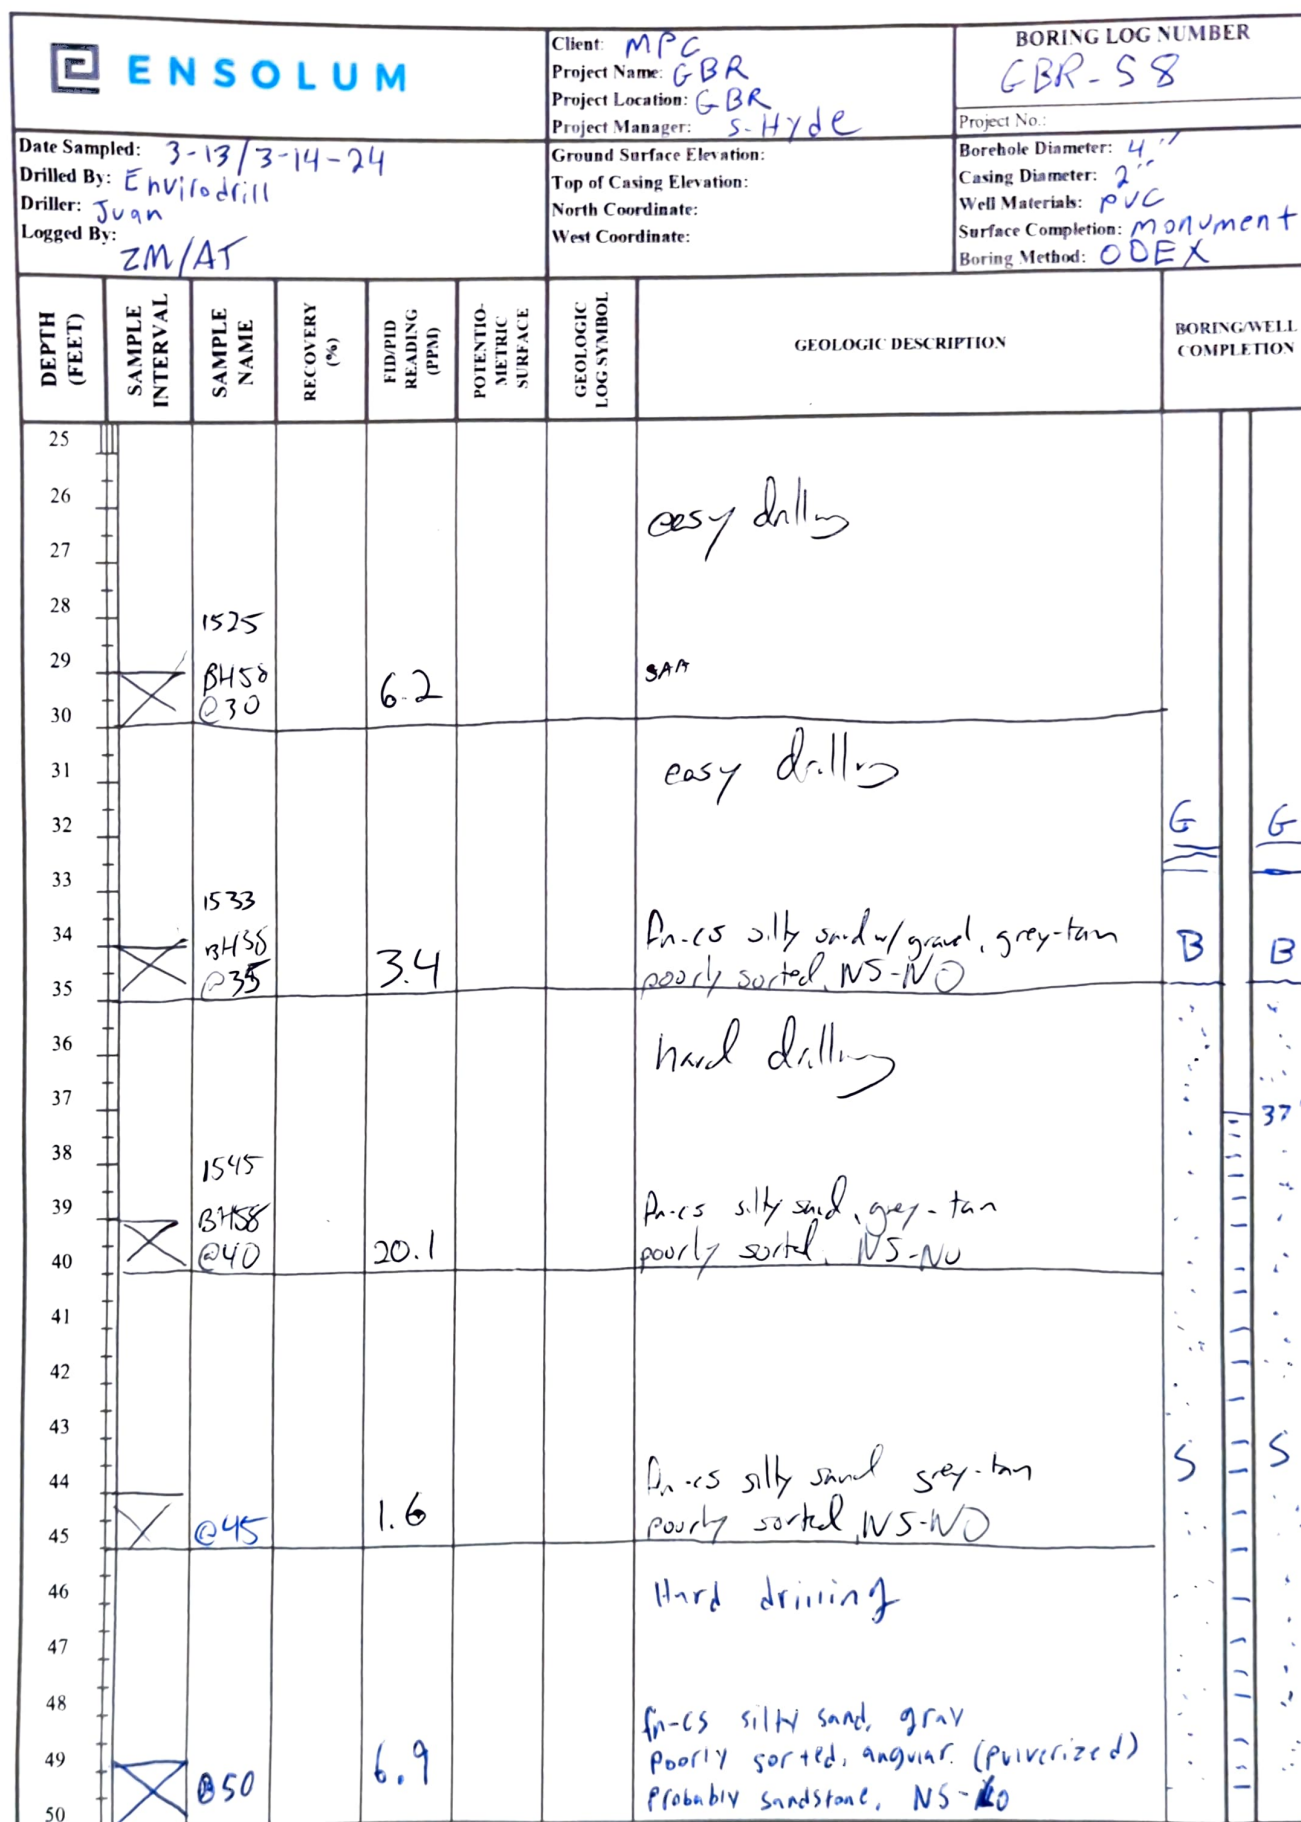 ENSOLUM
Client: MPC
Project Name: GBR
Project Location: GBR
Project Manager: S. Hyde
BORING LOG NUMBER
GBR-58
Project No.:
Date Sampled: 3-13/3-14-24
Drilled By: Envirodrill
Driller: Juan
Logged By: ZM/AT
Ground Surface Elevation:
Top of Casing Elevation:
North Coordinate:
West Coordinate:
Borehole Diameter: 4"
Casing Diameter: 2"
Well Materials: PVC
Surface Completion: Monument
Boring Method: ODEX
DEPTH (FEET)
SAMPLE INTERVAL
SAMPLE NAME
RECOVERY (%)
FID/PID READING (PPM)
POTENTIO-METRIC SURFACE
GEOLOGIC LOG SYMBOL
GEOLOGIC DESCRIPTION
BORING/WELL COMPLETION
25
26
easy drilling
27
28
1525
29
BH58
SAA
@30
6.2
30
31
easy drilling
32
G G
33
1533
34
BH38
fn-cs silty sand w/ gravel, grey-tan
B B
@35
3.4
poorly sorted, NS-NO
35
36
hard drilling
37
37
38
1545
39
BH58
fn-cs silty sand, grey-tan
@40
20.1
poorly sorted, NS-NO
40
41
42
43
44
fn-cs silty sand grey-tan
S S
@45
1.6
poorly sorted, NS-NO
45
46
Hard drilling
47
48
fn-cs silty sand, gray
49
6.9
poorly sorted, angular. (pulverized)
@50
Probably sandstone, NS-NO
50